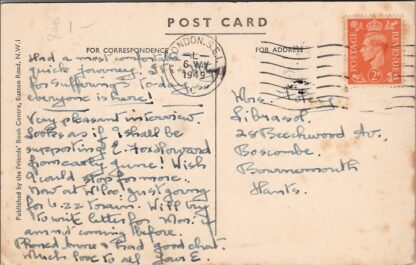 £1-
POST CARD
FOR CORRESPONDENCE
FOR ADDRESS
LONDON. S.E.1
6 MAY
1949
POSTAGE
REVENUE
2D
Published by the Friends' Book Centre, Euston Road, N.W.1
Had a most comfortable
quick journey.
for sufferings to-day as
everyone is here!
Very pleasant interview.
Looks as if I shall be
supporting E. Fox forward
from early June! Wish
I could stop for more.
Now at W'loo. just going
for 6.22 train. Will try
to write letter for Mon. if
am not coming before.
Phoned home & had good chat.
Much love to all your E.
Mrs.
Librasol
25 Beechwood Av.,
Boscombe.
Bournemouth
Hants.